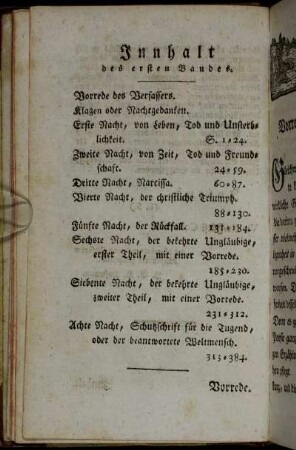 Innhalt
des ersten Bandes.
Vorrede des Verfassers.
Klagen oder Nachtgedanken.
Erste Nacht, von Leben, Tod und Unsterb-
lichkeit. S. 1-24.
Zweite Nacht, von Zeit, Tod und Freund-
schaft. 24-59.
Dritte Nacht, Narcissa. 60-87.
Vierte Nacht, der christliche Triumph.
88-130.
Fünfte Nacht, der Rückfall. 131-184.
Sechste Nacht, der bekehrte Ungläubige,
erster Theil, mit einer Vorrede.
185-230.
Siebente Nacht, der bekehrte Ungläubige,
zweiter Theil, mit einer Vorrede.
231-312.
Achte Nacht, Schutzschrift für die Tugend,
oder der beantwortete Weltmensch.
313-384.
Vorrede.